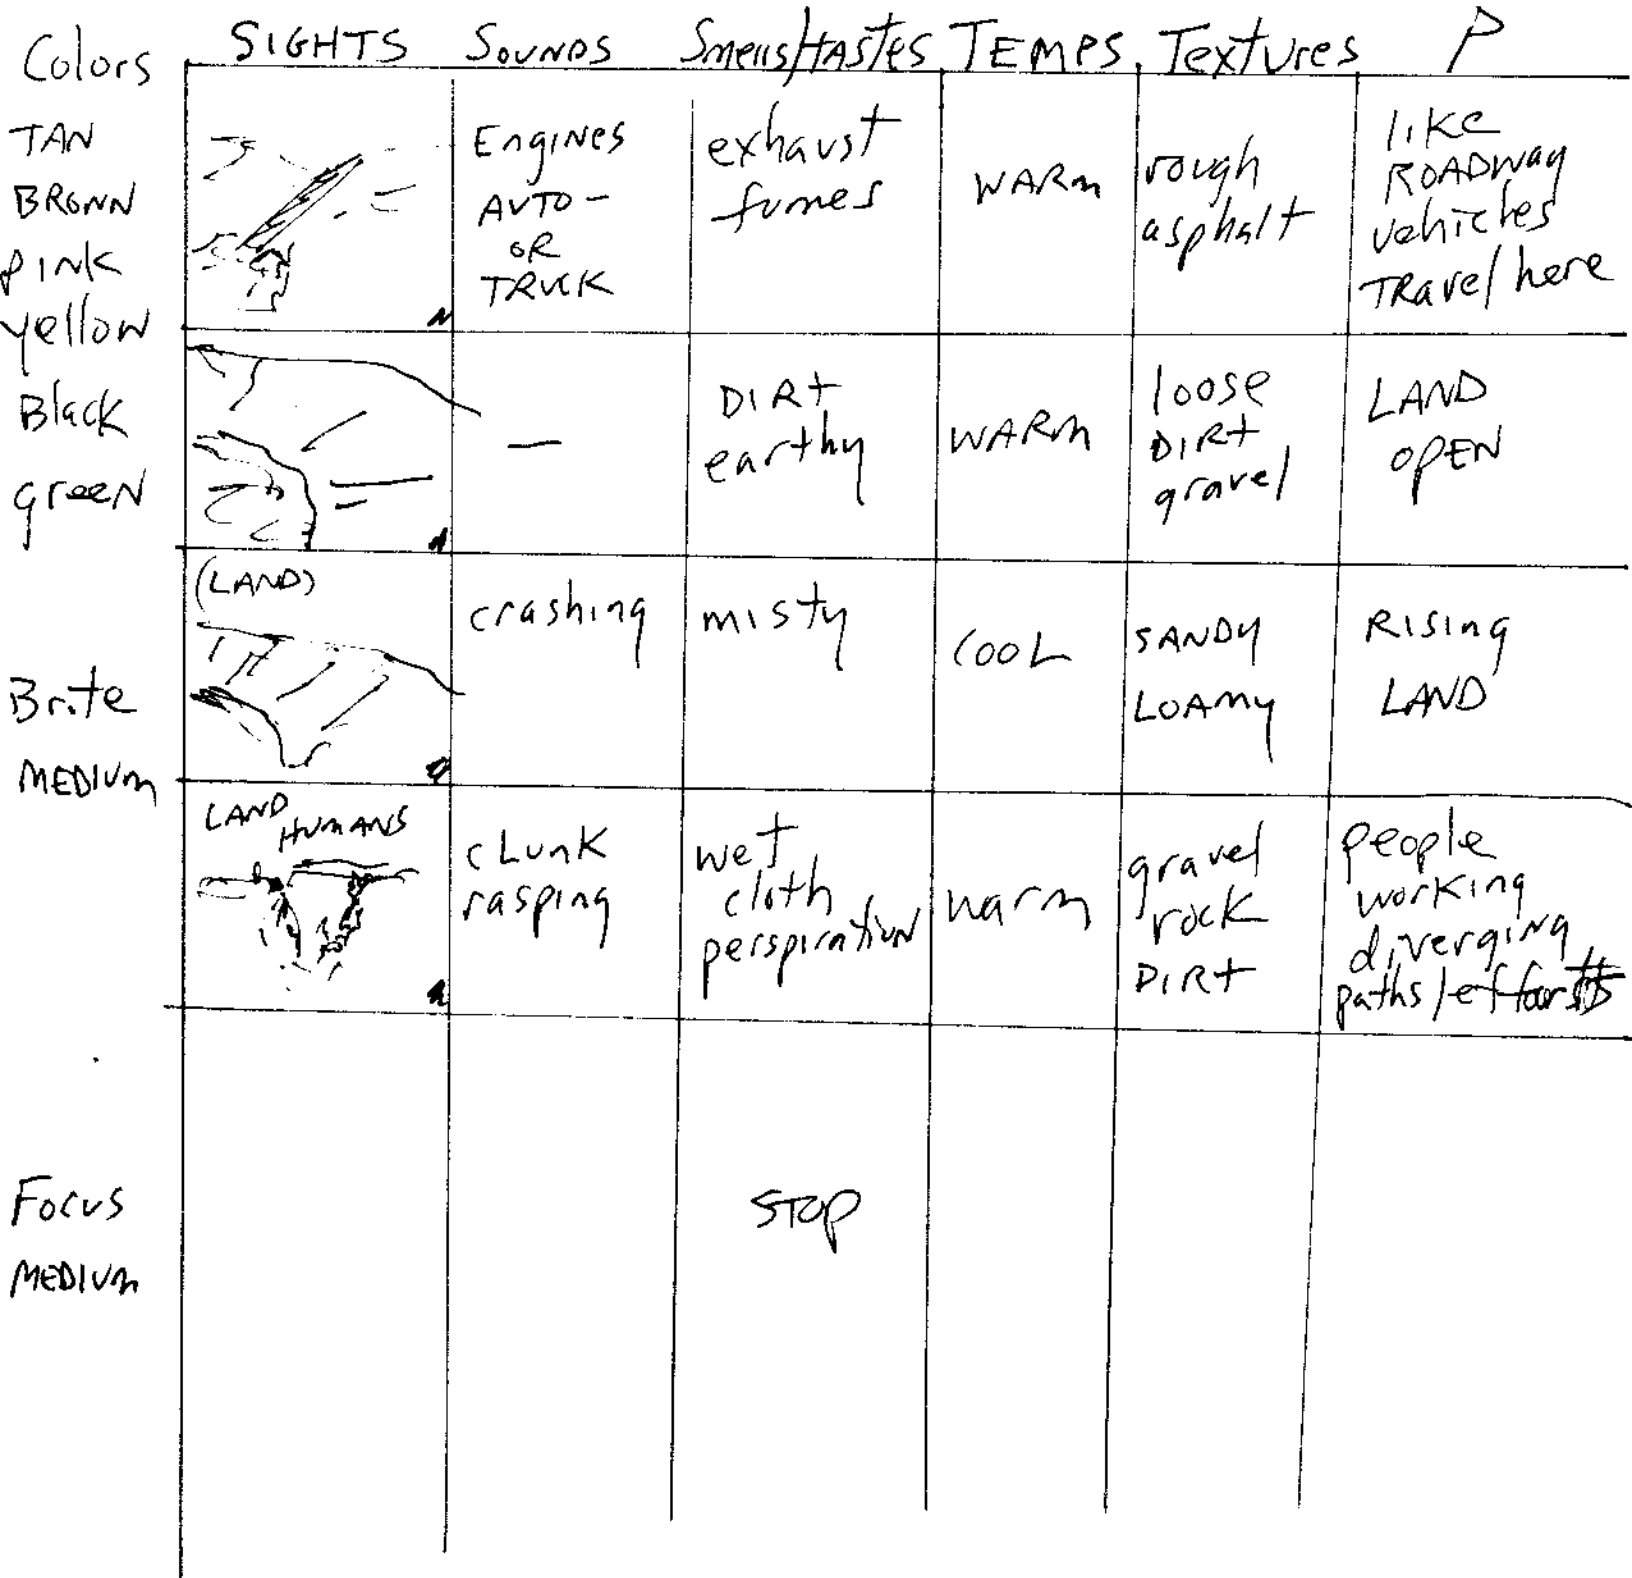 Colors SIGHTS SOUNDS Smells/tAStES TEMPS. Textures P
TAN
BROWN
PINK
yellow
Black
green
Brite
MEDIUM
Focus
MEDIUM
EngiNES
AUTO -
OR
TRUCK
exhaust
fumes
WARm
rough
asphalt
like
ROADway
vehicles
TRavel here
—
DIRt
earthy
WARm
loose
DIRt
gravel
LAND
OPEN
(LAND)
crashing
misty
COOL
SANDy
LOAmy
RISing
LAND
LAND
HUMANS
cLunK
rasping
wet
cloth
perspiration
warm
gravel
rock
DIRt
people
working
diverging
paths/efforts
STOP